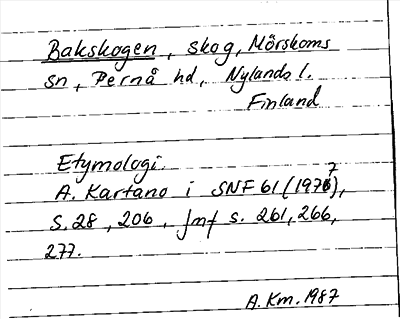 Bakskogen, skog, Mörskoms
sn, Pernå hd, Nylands l.
Finland
Etymologi.
A. Kartano i SNF 61 (1977),
s. 28, 206. Jmf s. 261, 266,
277.
A.Km. 1987